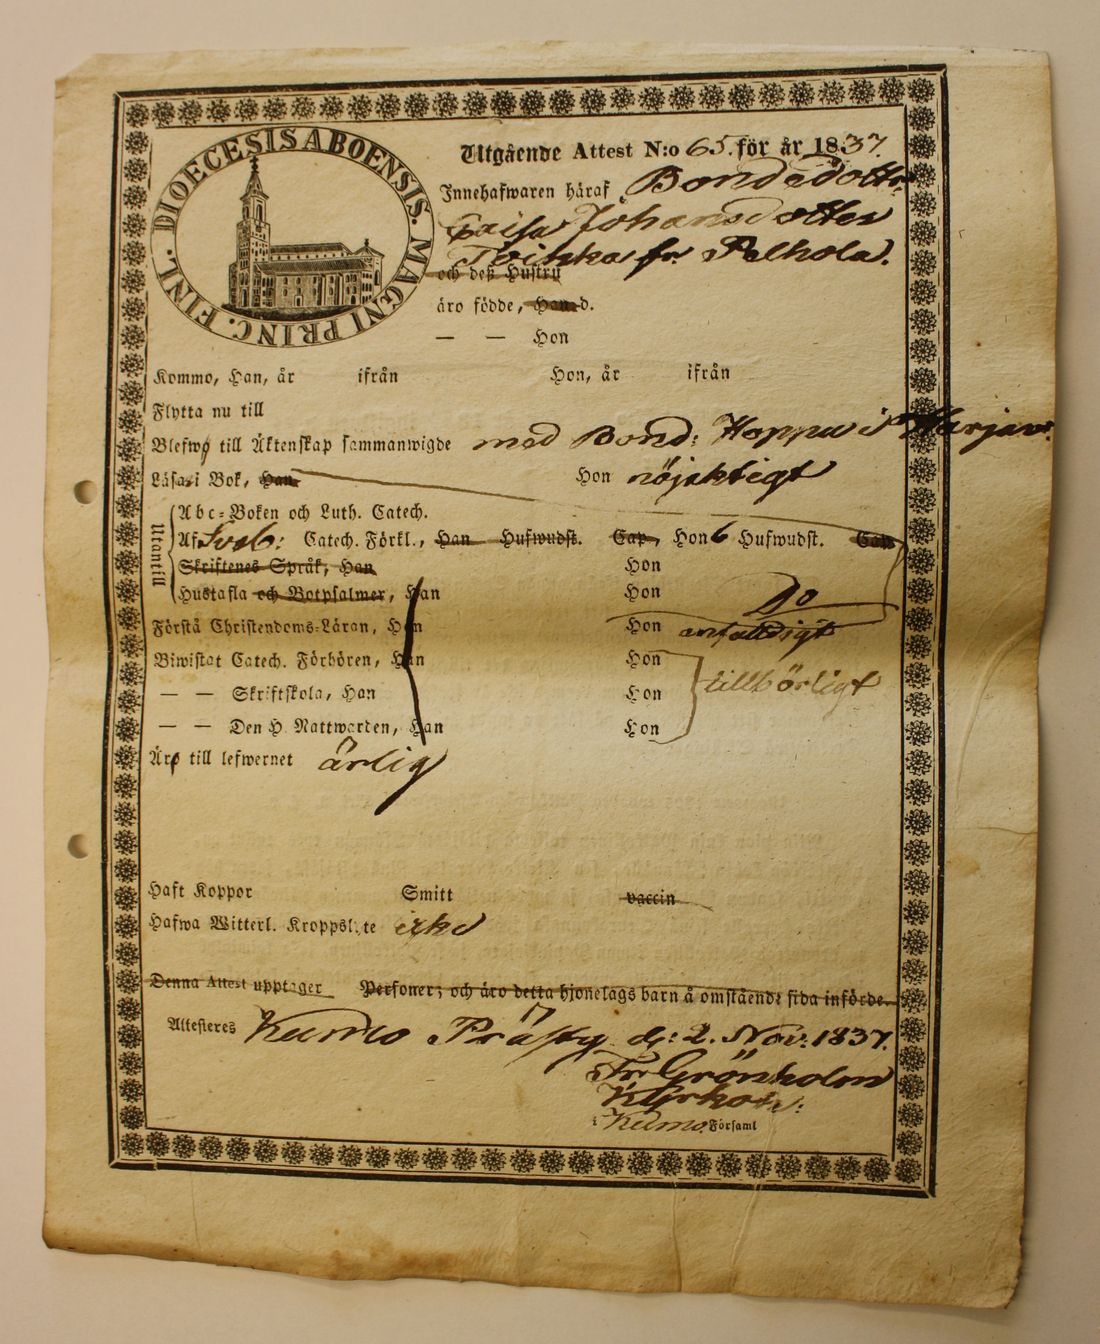 DIOECESIS ABOENSIS. MAGNI PRINC. FINL.
Utgående Attest N:o 65. för år 1837.
Innehafwaren häraf, Bondedottr
Caisa Johansdotter
Toikka fr. Palhola.
och deß Hustru
äro födde, Han d.
— — Hon
Kommo, Han, år ifrån Hon, år ifrån
Flytta nu till
Blefwo till Äktenskap sammanwigde med Bond: Hoppu i Harjav:
Läsa i Bok, Han Hon nöjaktigt
Utantill
Abc-Boken och Luth. Catech.
Af Sveb: Catech. Förkl., Han Hufwudst. Cap., Hon 6 Hufwudst. Cap
Skriftenes Språk, Han Hon
Hustafla och Botpsalmer, Han Hon Do
Förstå Christendoms-Läran, Han Hon enfaldigt
Biwistat Catech. Förhören, Han Hon
— — Skriftskola, Han Hon tillbörligt
— — Den H. Nattwarden, Han Hon
Äro till lefwernet ärlig
Haft Koppor Smitt vaccin
Hafwa Witterl. Kroppslyte icke
Denna Attest upptager Personer; och äro detta hjonelags barn å omstående sida införde.
Attesteres Kumo Prästg. d: 2. Nov: 1837.
Fr: Grönholm
i Kumo Församl